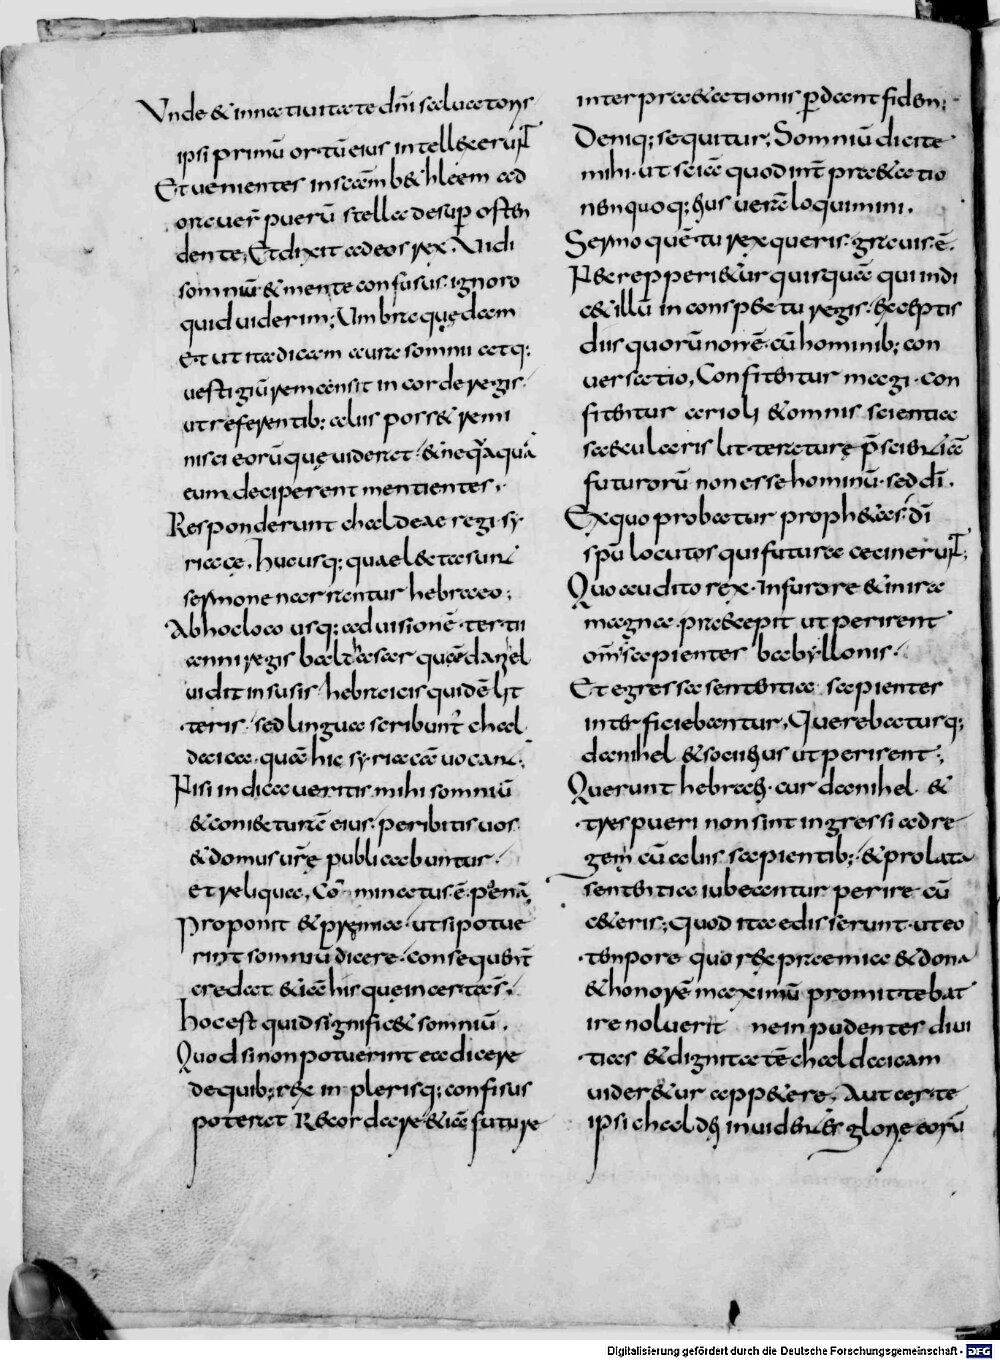 Unde & innatiuitate dn̄i saluatoris
ipsi primū ortū eius intellexerunt
Et uenientes in scām b&hleem ad
orauer̄ puerū stella desup osten
dente; Et dixit ad eos rex. Uidi
somniū & mente confusus ignoro
quid uiderim; Umbra quędam
Et ut ita dicam aura somnii atq;
uestigiū remansit in corde regis.
ut referentib; aliis poss& remi
nisci eorū quę uiderat. & nequaquā
eum deciperent mentientes.
Responderunt chaldeae regi sy
riacę. Hucusq; quae l&ta sunt
sermone narrantur hebraeo;
Ab hoc loco usq; ad uisionē tertii
anni regis baltasar quā daniel
uidit in susis. hebraicis quidē lit
teris. sed lingua scribunt̄ chal
daica. quā hic syriacā uocant;
Nisi indicaueritis mihi somniū
& coniecturā eius. peribitis uos
& domus ur̄ę publicabuntur.
et reliqua, Cōminatus ē pęnā
Proponit & pręmia. ut si potue
rint somniū dicere. consequent̄
credat & iā his quę incerta s̄.
hoc est quid signific& somniū.
Quod si non potuerint ea dicere
de quib; rex in plerisq; confisus
poterat Recordare & iā future
interpr&ationis pdeant fidem;
Deniq; sequitur; Somniū dicite
mihi. ut sciā quod int̄pr&atio
nem quoq; eius uerā loquimini.
Sermo quē tu rex queris. grauis ē.
Nec repperi&ur quisquā qui indi
c&illū in conspectu regis. Exceptis
diis quorū non ē. cū hominib; con
uersatio, Confitentur magi. con
fitentur arioli & omnis scientia
saecularis litteraturę p̄scientiā
futurorū non esse hominū. sed dī.
Ex quo probatur proph&as dī
spū locutos qui futura cecinerunt;
Quo audito rex. In furore & in ira
magna. praecepit ut perirent
om̄s sapientes babyllonis.
Et egressa sententia sapientes
interficiebantur, Querebaturq;
danihel & socii eius ut perirent;
Querunt hebraei. cur danihel &
tres pueri non sint ingressi ad re
gem cū aliis sapientib; & prolata
sententia iubeantur perire cū
c&eris; Quod ita edisserunt. ut eo
tempore quo rex praemia & dona
& honorē maximū promittebat
ire noluerit ne inpudentes diui
tias & dignitatē chaldaicam
uider&ur app&ere. Aut certe
ipsi chaldei inuidentes glorię eorū
Digitalisierung gefördert durch die Deutsche Forschungsgemeinschaft - DFG